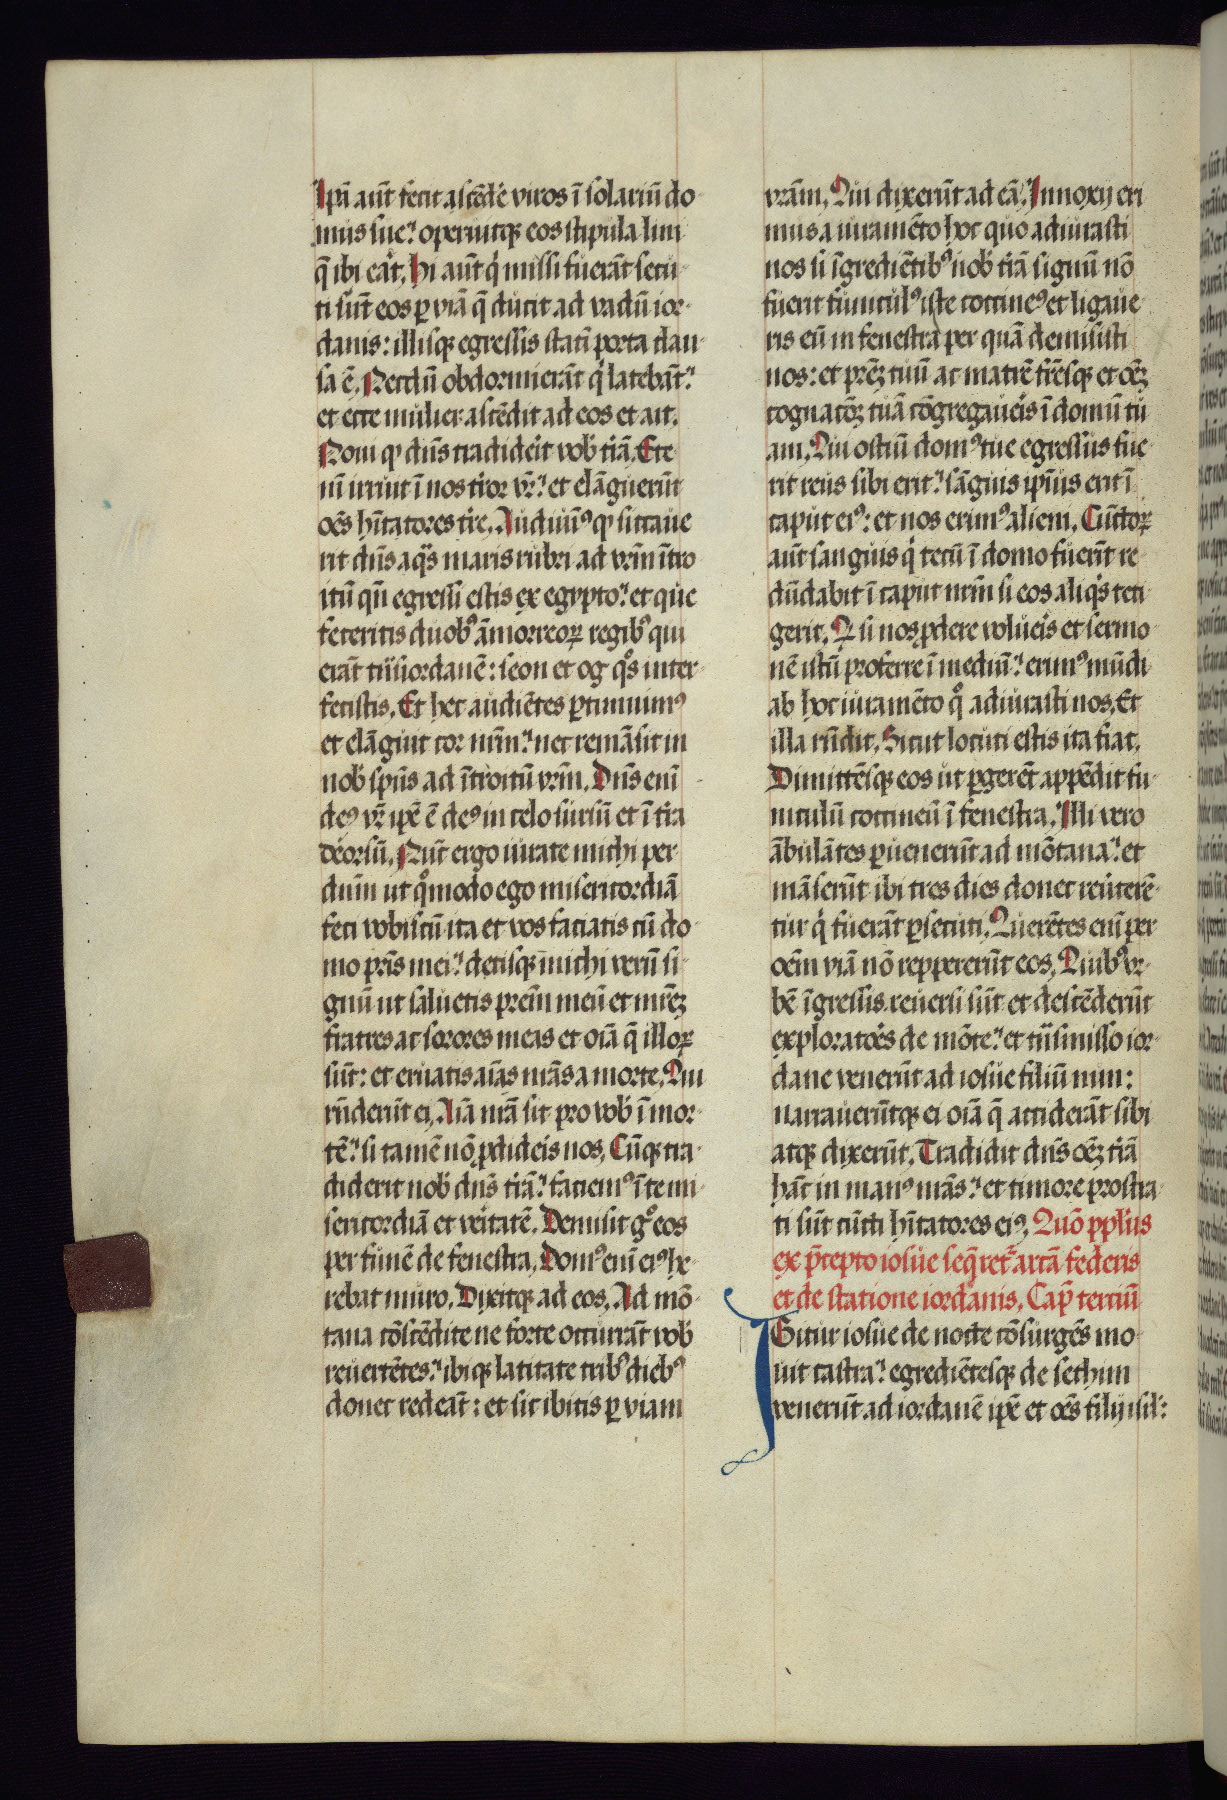 Ip̄i aūt fecit ascēdē viros ī solariū do
mus sue. operiuitqꝫ eos stipula lini
q̄ ibi eāt. Hi aūt q̇ missi fuerāt secu
ti sūt eos ꝑ viā q̄ ducit ad vadū ior
danis: illisqꝫ egressis statī porta clau
sa ē. Necdū obdormierāt q̇ latebāt.
et ecce mulier ascēdit ad eos et ait.
Noui qꝫ dn̄s tradiderit vob̄ t̄rā. Ete
nī irruit ī nos terror vr̄. et elāguerūt
oēs hītatores t̄re. Audiuimꝰ qꝫ siccaue
rit dn̄s aq̄s maris rubri ad vr̄m ītro
itū qn̄ egressi estis ex egypto. et que
feceritis duobꝰ āmorreoꝝ regibꝰ qui
erāt trās iordanē: seon et og qͦs inter
fecistis. Et hec audiētes ꝑtimuimꝰ
et elāguit cor nr̄m. nec remāsit in
nob̄ spūs ad ītroitū vr̄m. Dn̄s enī
deꝰ vr̄ ip̄e ē deꝰ in celo sursū et ī t̄ra
deorsū. Nūc ergo iurate michi per
dn̄m ut qͦmodo ego misericordiā
feci vobiscū ita et vos faciatis cū do
mo pr̄is mei. detisqꝫ michi verū si
gnū ut saluetis pr̄em meū et mr̄eꝫ
fratres ac sorores meas et oīa q̄ illoꝝ
sūt: et eruatis aīas nr̄as a morte. Qui
rn̄derūt ei. Aīa nr̄a sit pro vob̄ ī mor
tē. si tamē nō ꝓdideris nos. Cūqꝫ tra
diderit nob̄ dn̄s t̄rā. faciemꝰ ī te mi
sericordiā et veritatē. Demisit gͦ eos
per funē de fenestra. Domꝰ enī eiꝰ he
rebat muro. Dixitqꝫ ad eos. Ad mō
tana cōscēdite ne forte occurrāt vob̄
reuertētes. ibiqꝫ latitate tribꝰ diebꝰ
donec redeāt: et sic ibitis ꝑ viam
vr̄am. Qui dixerūt ad eā. Innoxij eri
mus a iuramēto hoc quo adiurasti
nos si īgrediētibꝰ nob̄ t̄rā signū nō
fuerit funiculꝰ iste coccineꝰ et ligaue
ris eū in fenestra per quā demisisti
nos: et pr̄eꝫ tuū ac matrē fr̄esqꝫ et oēꝫ
cognatōꝫ tuā cōgregaueris ī domū tu
am. Qui ostiū domꝰ tue egressus fue
rit reus sibi erit. sāguis ip̄ius erit ī
caput eiꝰ: et nos erimꝰ alieni. Cunctoꝝ
aūt sanguis q̇ tecū ī domo fuerūt re
dūdabit ī caput nr̄m si eos aliq̇s teti
gerit. Qꝫ si nos ꝓdere volueris et sermo
nē istū proferre ī mediū. erimꝰ mūdi
ab hoc iuramēto qͦ adiurasti nos. Et
illa rn̄dit. Sicut locuti estis ita fiat.
Dimittēsqꝫ eos ut ꝑgerēt appēdit fu
niculū coccineū ī fenestra. Illi vero
ābulātes ꝑuenerūt ad mōtana. et
māserūt ibi tres dies donec reuterē
tur q̇ fuerāt ꝑsecuti. Querētes enī per
oēm viā nō reppererūt eos. Quibꝰ vr
bē īgressis reuersi sūt et descēderūt
exploratores de mōte. et trāsmisso ior
dane venerūt ad iosue filiū nun:
narrauerūtqꝫ ei oīa q̄ acciderāt sibi
atqꝫ dixerūt. Tradidit dn̄s oēꝫ t̄rā
hāc in manꝰ nr̄as. et timore prostra
ti sūt cūcti hītatores eiꝰ. Quō ppl̄us
ex p̄cepto iosue seq̄ret̄ arcā federis
et de statione iordanis. Cap̄ terciū
IGitur iosue de nocte cōsurgēs mo
uit castra. egrediētesqꝫ de sethim
venerūt ad iordanē ip̄e et oēs filij isrl̄: